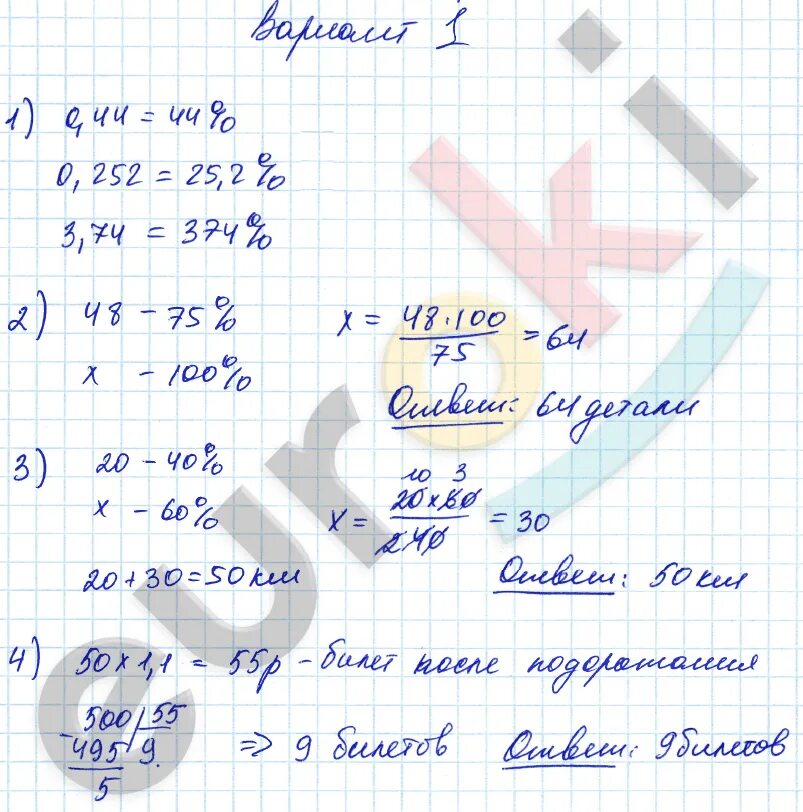 Вариант 1
1) 0,44 = 44%
0,252 = 25,2%
3,74 = 374%
2) 48 - 75%
x - 100%
x = 48·100 / 75 = 64
Ответ: 64 детали
3) 20 - 40%
x - 60%
10 3
x = 20×60 / 2 40 = 30
20 + 30 = 50 км
Ответ: 50 км
4) 50 × 1,1 = 55р - билет после подорожания
500 | 55
-495 | 9.
5
=> 9 билетов
Ответ: 9 билетов
euroki